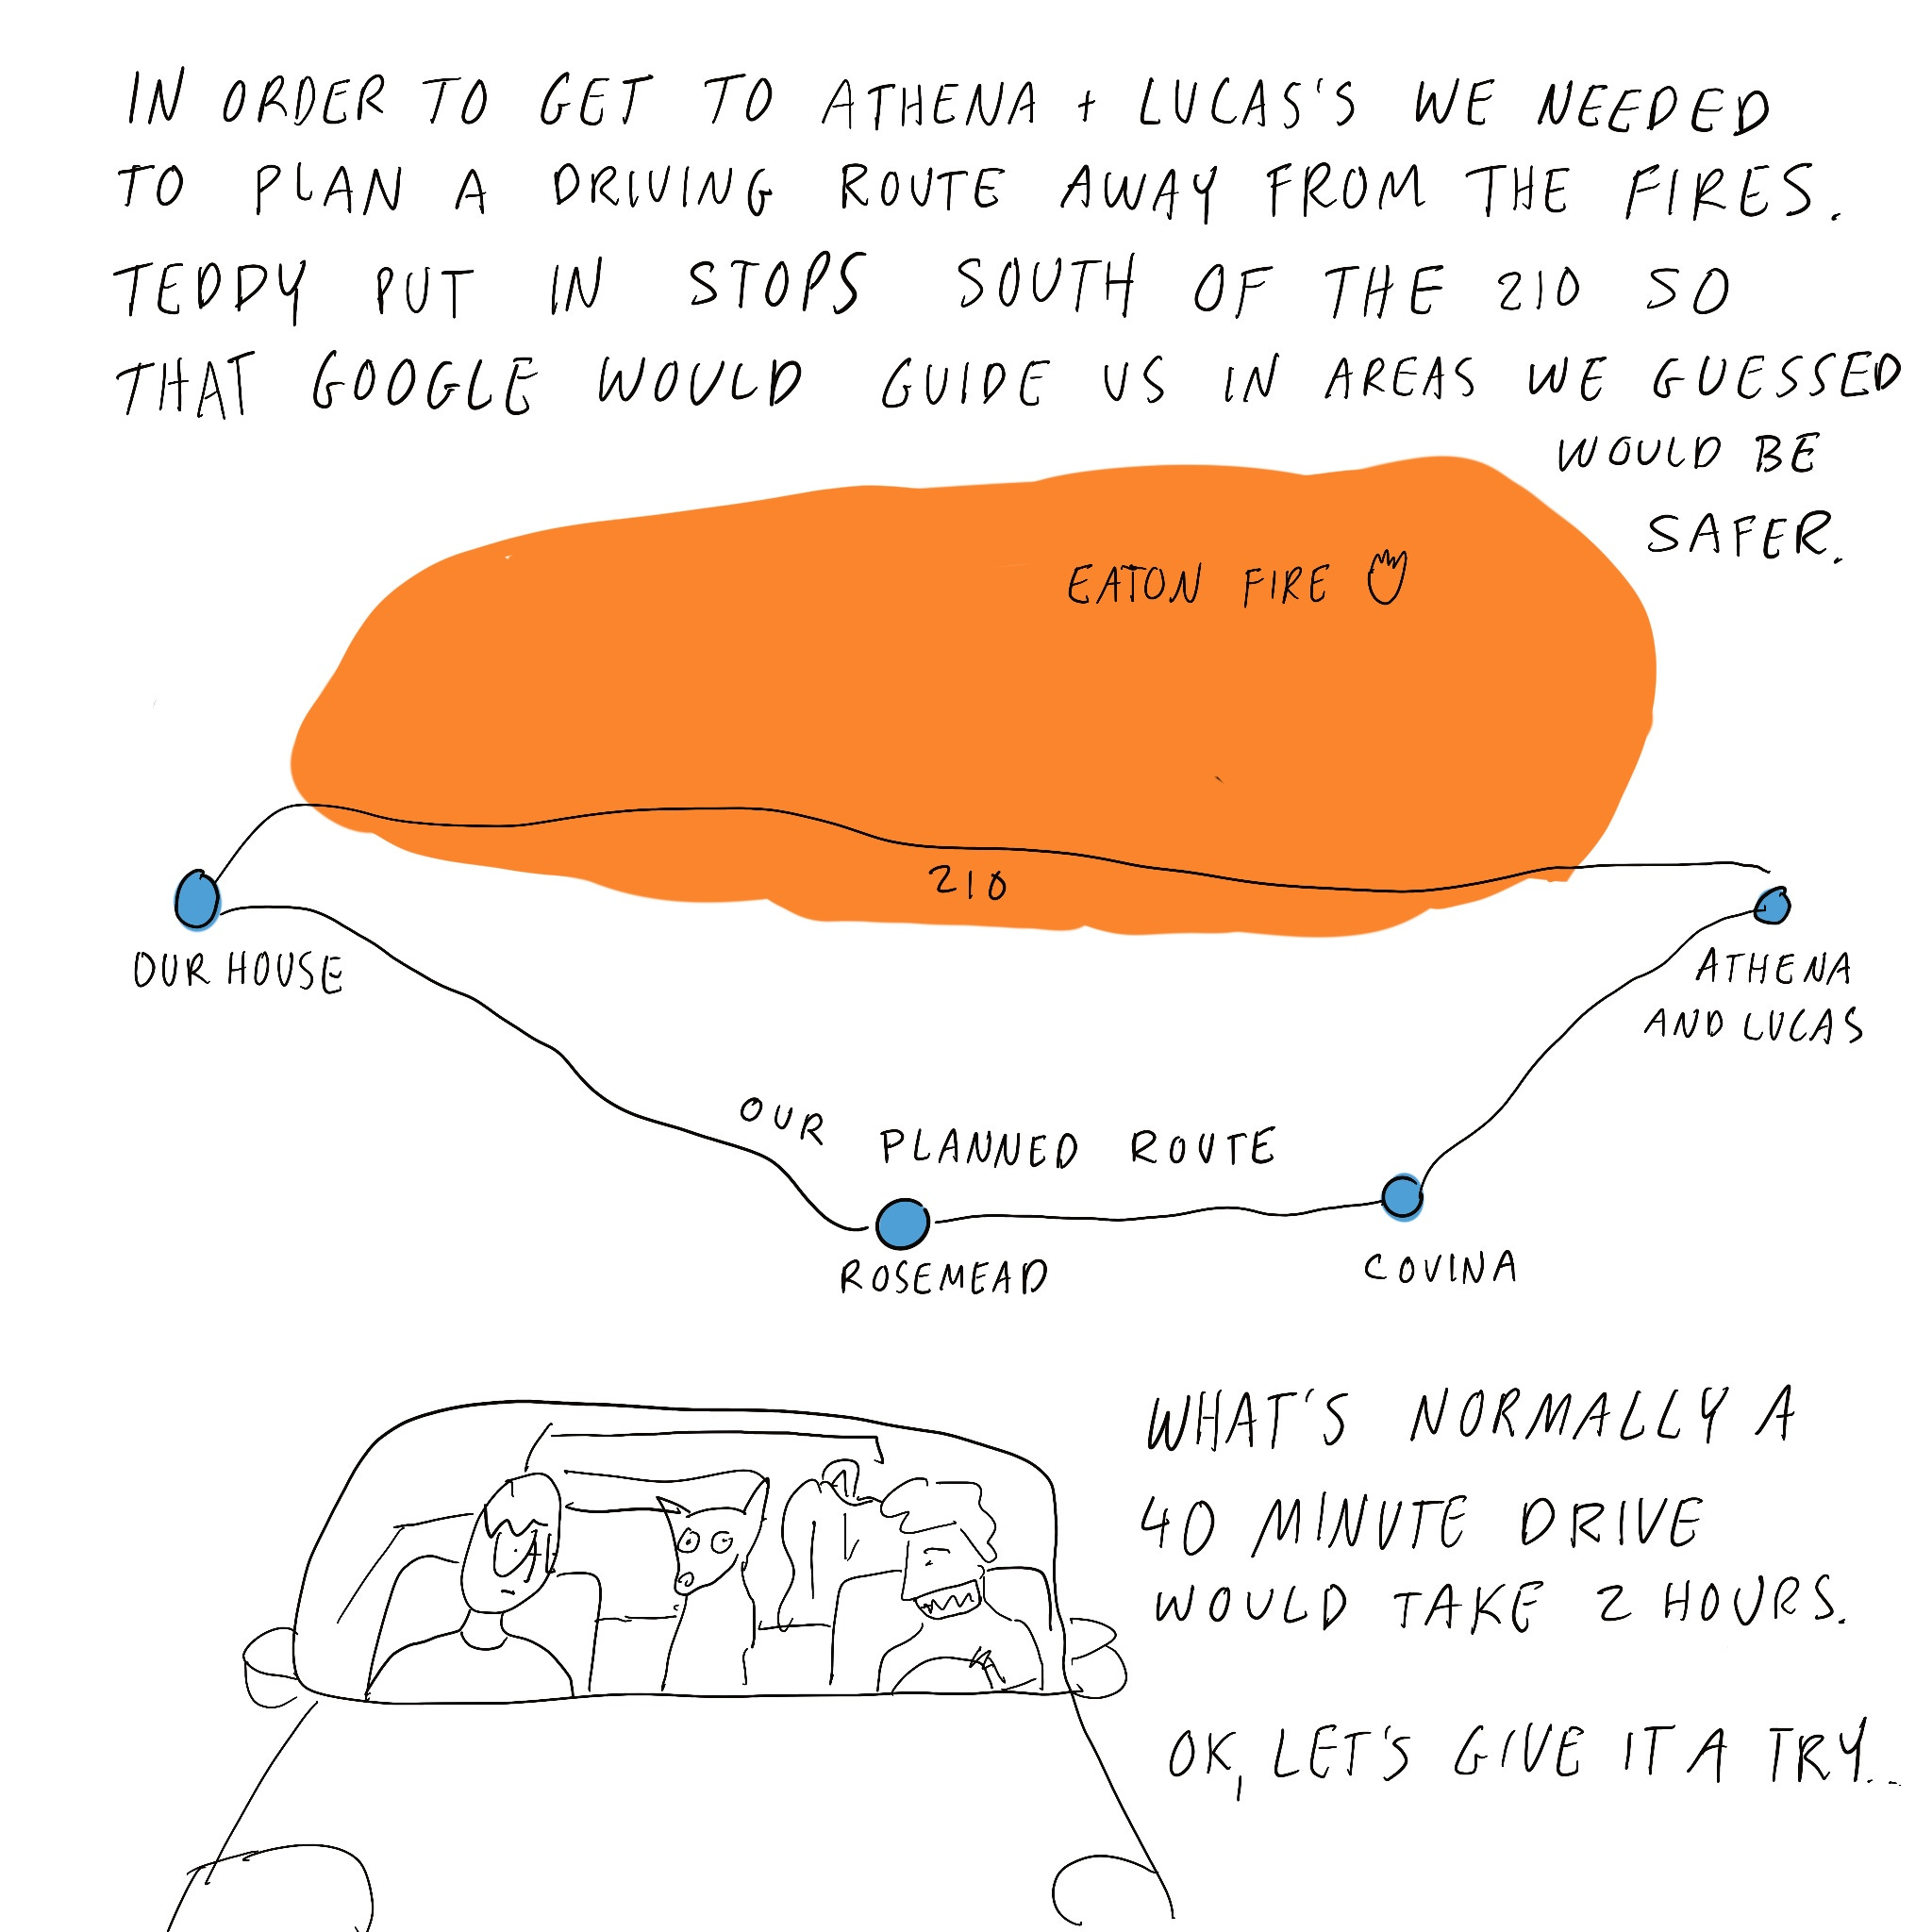 IN ORDER TO GET TO ATHENA + LUCAS'S WE NEEDED
TO PLAN A DRIVING ROUTE AWAY FROM THE FIRES.
TEDDY PUT IN STOPS SOUTH OF THE 210 SO
THAT GOOGLE WOULD GUIDE US IN AREAS WE GUESSED
WOULD BE
SAFER.
EATON FIRE
210
OUR HOUSE
ATHENA
AND LUCAS
OUR PLANNED ROUTE
ROSEMEAD
COVINA
WHAT'S NORMALLY A
40 MINUTE DRIVE
WOULD TAKE 2 HOURS.
OK, LET'S GIVE IT A TRY...